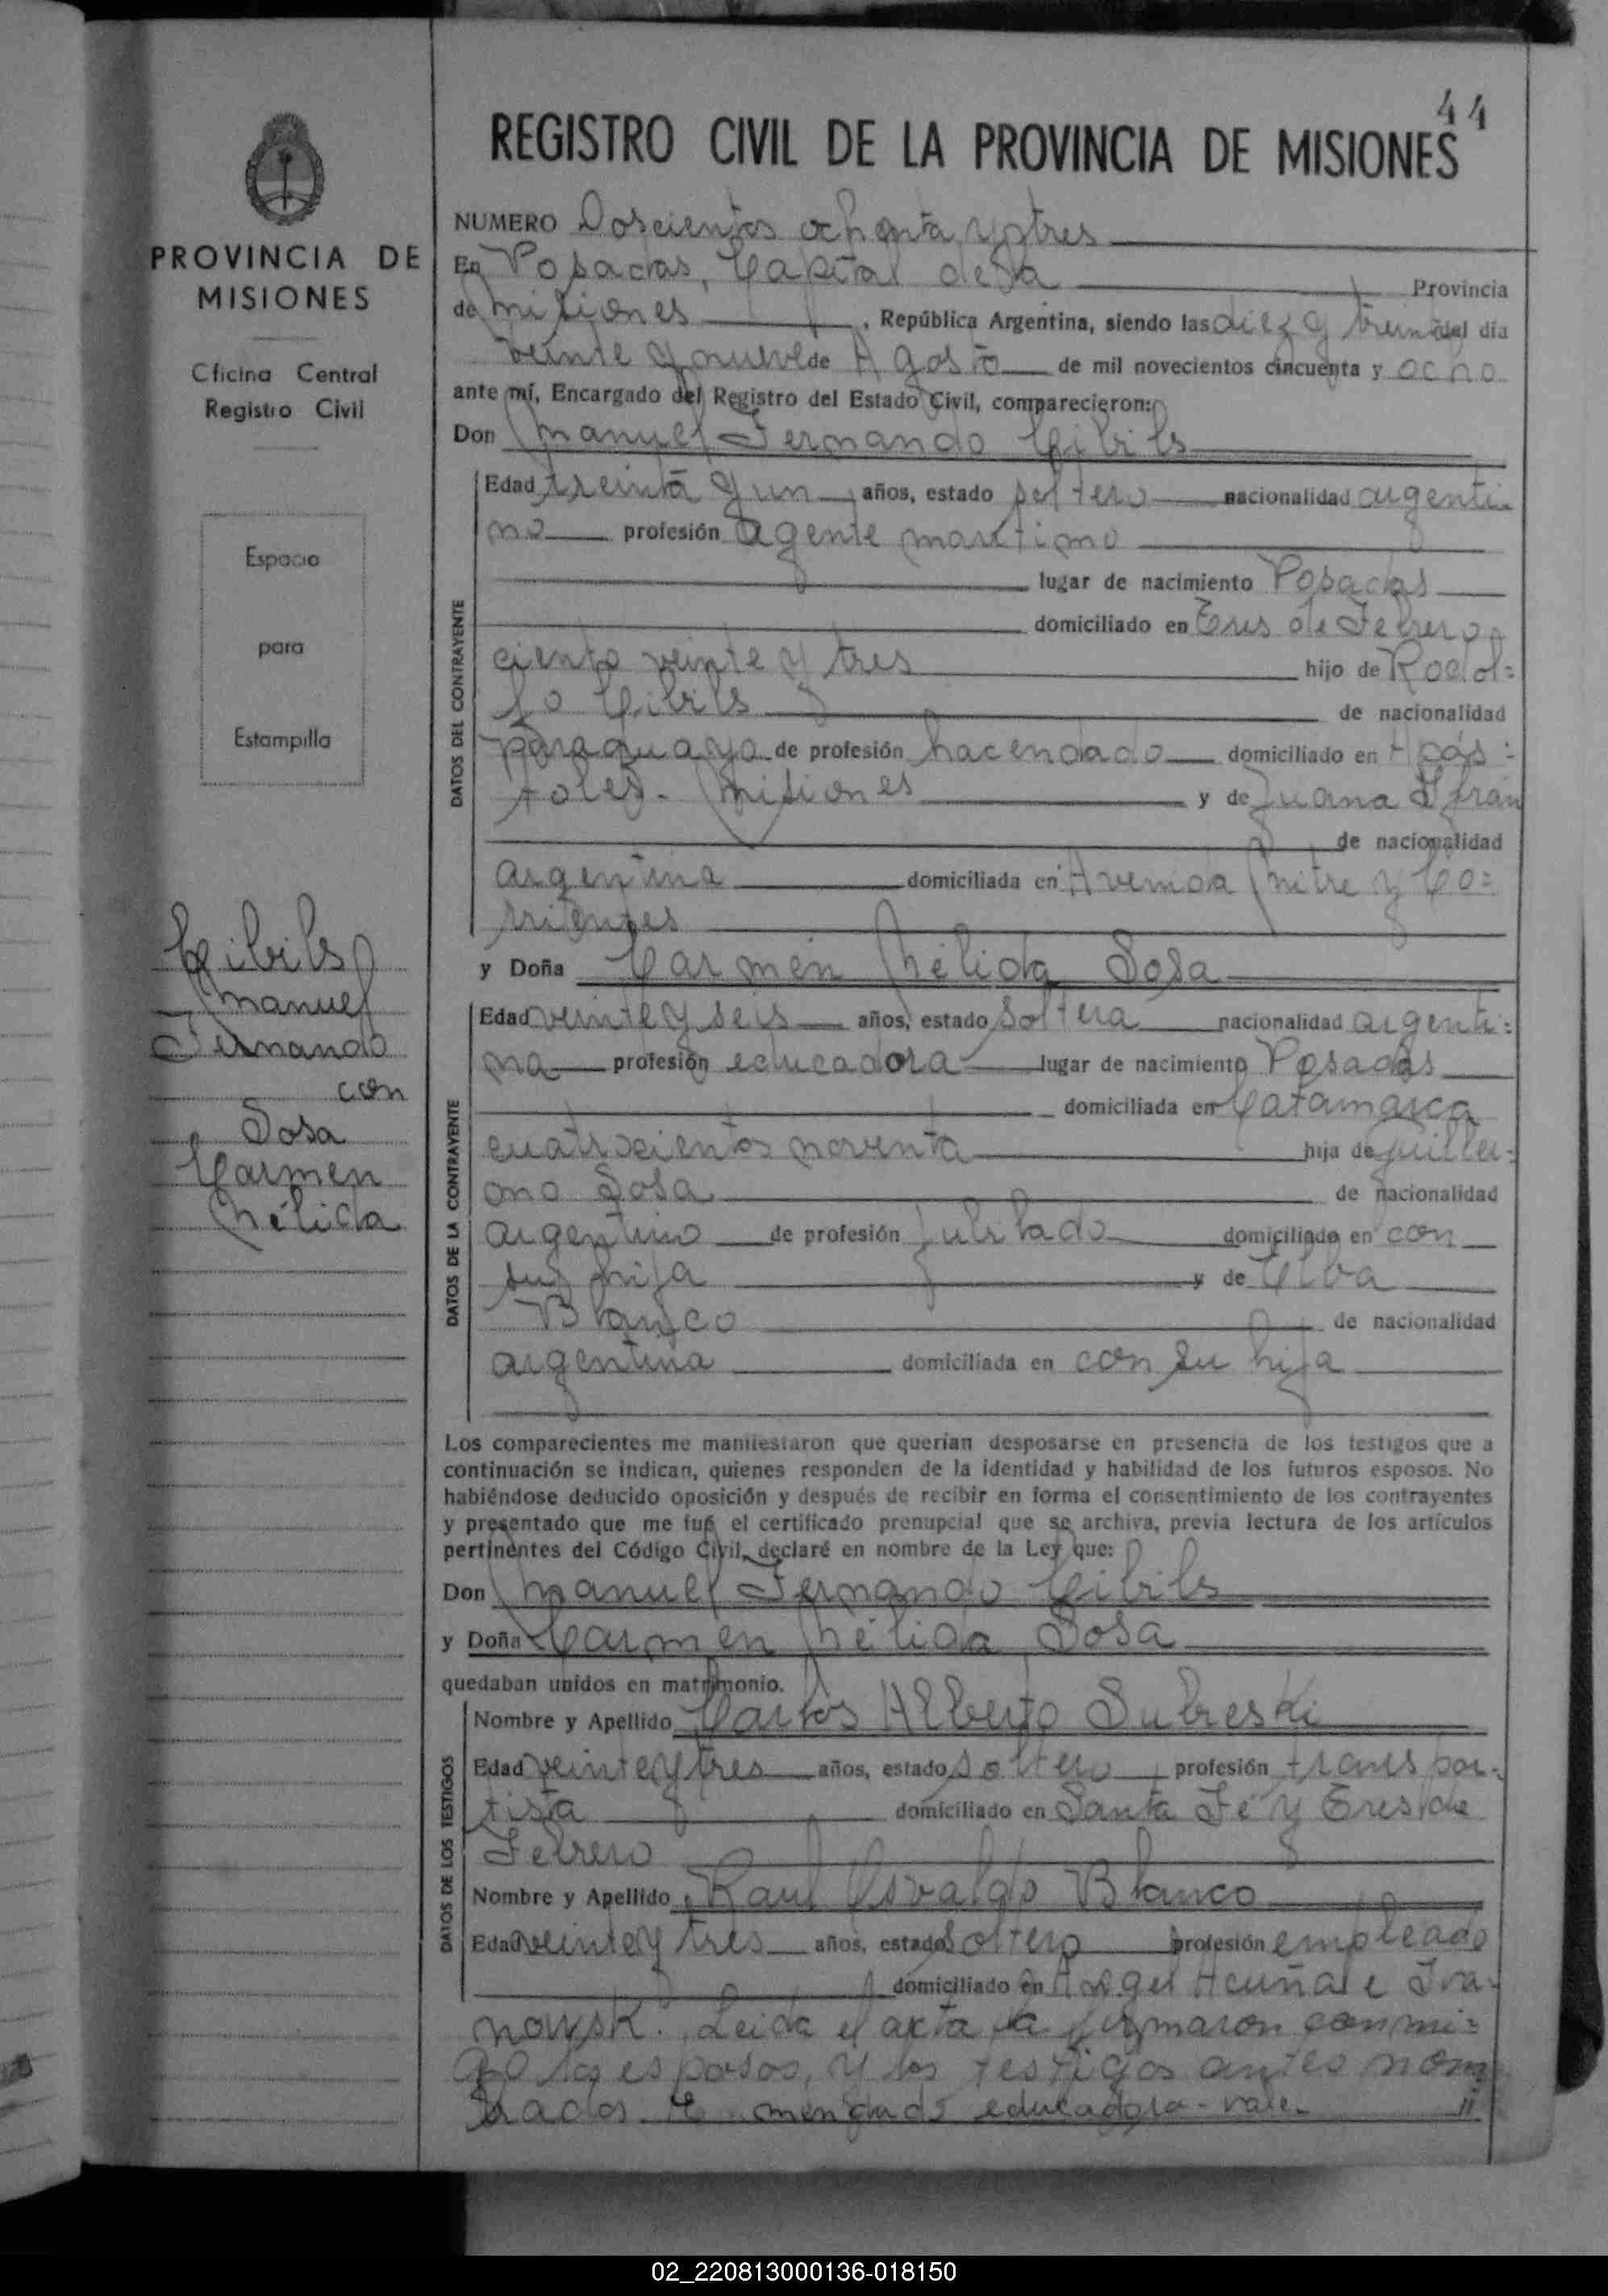 44
REGISTRO CIVIL DE LA PROVINCIA DE MISIONES
PROVINCIA DE
MISIONES
Oficina Central
Registro Civil
Espacio
para
Estampilla
Cibils
Manuel
Fernando
con
Sosa
Carmen
Nélida
NUMERO Doscientos ochenta y tres
En Posadas, Capital de la Provincia
de Misiones, República Argentina, siendo las diez y treinta del día
veinte y nueve de Agosto de mil novecientos cincuenta y ocho
ante mí, Encargado del Registro del Estado Civil, comparecieron:
Don Manuel Fernando Cibils
DATOS DEL CONTRAYENTE
Edad treinta y un años, estado soltero nacionalidad argenti-
no profesión agente marítimo
lugar de nacimiento Posadas
domiciliado en Tres de Febrero
ciento veinte y tres hijo de Rodol=
fo Cibils de nacionalidad
paraguayo de profesión hacendado domiciliado en Após=
toles - Misiones y de Juana
de nacionalidad
argentina domiciliada en Avenida Mitre y Co=
rrientes
y Doña Carmen Nélida Sosa
DATOS DE LA CONTRAYENTE
Edad veinte y seis años, estado soltera nacionalidad argenti=
na profesión educadora lugar de nacimiento Posadas
domiciliada en Catamarca
cuatrocientos noventa hija de Guiller=
mo Sosa de nacionalidad
argentino de profesión jubilado domiciliado en con
su hija y de Elba
Blanco de nacionalidad
argentina domiciliada en con su hija
Los comparecientes me manifestaron que querían desposarse en presencia de los testigos que a
continuación se indican, quienes responden de la identidad y habilidad de los futuros esposos. No
habiéndose deducido oposición y después de recibir en forma el consentimiento de los contrayentes
y presentado que me fué el certificado prenupcial que se archiva, previa lectura de los artículos
pertinentes del Código Civil, declaré en nombre de la Ley que:
Don Manuel Fernando Cibils
y Doña Carmen Nélida Sosa
quedaban unidos en matrimonio.
DATOS DE LOS TESTIGOS
Nombre y Apellido Carlos Alberto Subreski
Edad veinte y tres años, estado soltero profesión transpor-
tista domiciliado en Santa Fé y Tres de
Febrero
Nombre y Apellido Raul Osvaldo Blanco
Edad veinte y tres años, estado soltero profesión empleado
domiciliado en Angel Acuña e Iva-
nowski. Leida el acta la firmaron conmi=
go los esposos, y los testigos antes nom
brados. E mendado educadora - vale. //
02_220813000136-018150